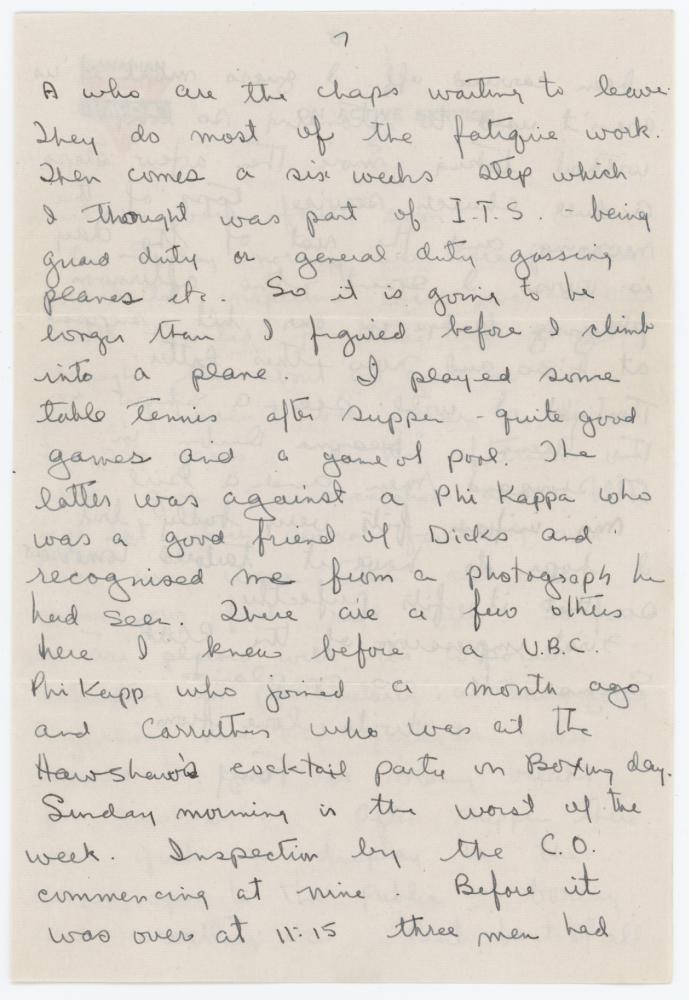 7
A who are the chaps waiting to leave.
They do most of the fatigue work.
Then comes a six weeks step which
I thought was part of I.T.S. - being
guard duty or general duty gassing
planes etc. So it is going to be
longer than I figured before I climb
into a plane. I played some
table tennis after supper - quite good
games and a game of pool. The
latter was against a Phi Kappa who
was a good friend of Dicks and
recognised me from a photograph he
had seen. There are a few others
here I knew before a U.B.C.
Phi Kapp who joined a month ago
and Carruthers who was at the
Hawshaw's cocktail party on Boxing day.
Sunday morning is the worst of the
week. Inspection by the C.O.
commencing at nine. Before it
was over at 11:15 three men had